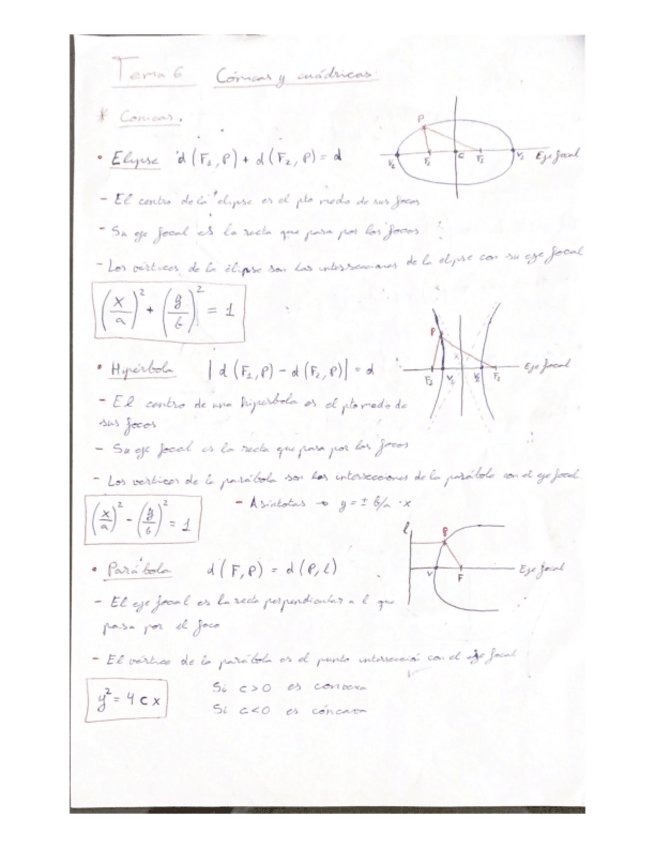 Tema 6 Cónicas y cuádricas.
* Cónicas.
• Elipse d(F₁,P) + d(F₂,P) = d
P
V₂ F₂ C F₁ V₁ Eje focal
- El centro de la elipse es el pto medio de sus focos
- Su eje focal es la recta que pasa por los focos
- Los vértices de la elipse son las intersecciones de la elipse con su eje focal
(x/a)² + (y/b)² = 1
• Hipérbola |d(F₁,P) - d(F₂,P)| = d
P
F₂ V₂ V₁ F₁ Eje focal
- El centro de una hipérbola es el pto medio de
sus focos
- Su eje focal es la recta que pasa por los focos
- Los vértices de la parábola son las intersecciones de la parábola con el eje focal
(x/a)² - (y/b)² = 1
- Asíntotas → y = ± b/a · x
• Parábola d(F,P) = d(P,l)
l P
V F Eje focal
- El eje focal es la recta perpendicular a l que
pasa por el foco
- El vértice de la parábola es el punto intersección con el eje focal
y² = 4cx
Si c>0 es convexa
Si c<0 es cóncava